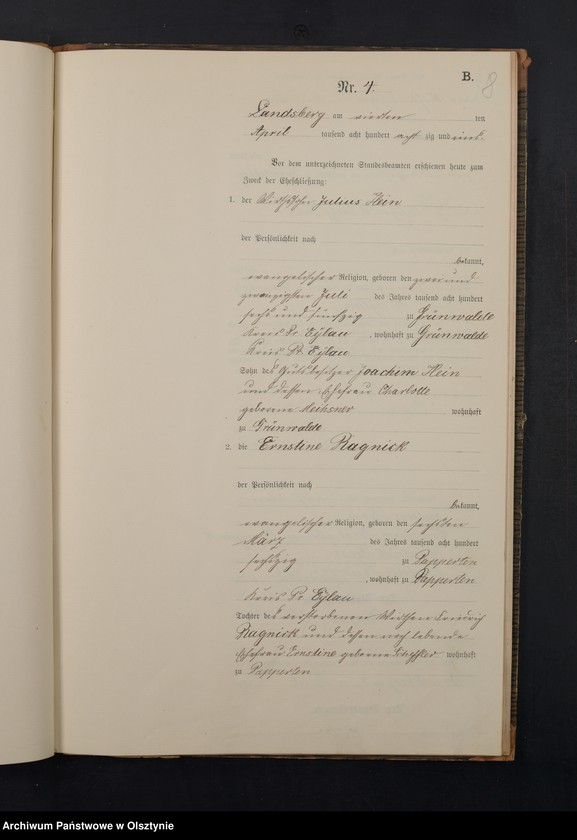 B.
8
Nr. 4.
Landsberg am vierten ten
April tausend acht hundert acht zig und eins.
Vor dem unterzeichneten Standesbeamten erschienen heute zum
Zweck der Eheschließung:
1. der Julius Hein
der Persönlichkeit nach
bekannt,
evangelischer Religion, geboren den zwei und
zwanzigsten Juli des Jahres tausend acht hundert
sechs und fünfzig zu Grünwalde
Kreis Pr. Eylau, wohnhaft zu Grünwalde
Kreis Pr. Eylau
Sohn des Gutsbesitzer Joachim Hein
und dessen Ehefrau Charlotte
geborene wohnhaft
zu Grünwalde
2. die Ernstine Ragnick
der Persönlichkeit nach
bekannt,
evangelischer Religion, geboren den sechsten
März des Jahres tausend acht hundert
sechszig zu Papperten
, wohnhaft zu Papperten
Kreis Pr. Eylau
Tochter des verstorbenen
Ragnick und dessen noch lebende
Ehefrau Ernstine geborene Scheffler wohnhaft
zu Papperten
Archiwum Państwowe w Olsztynie